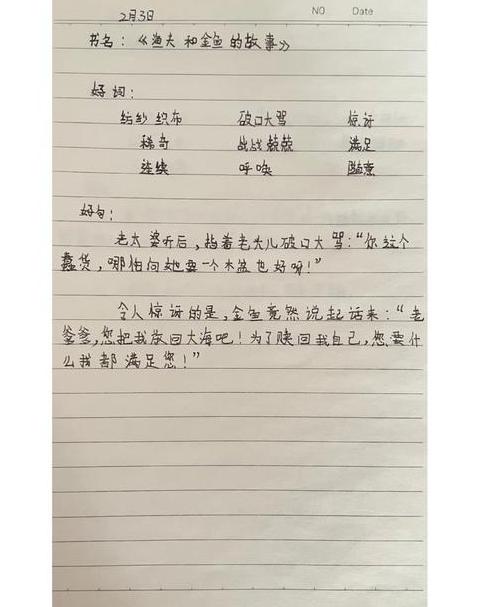 NO Date
2月3日
书名:《渔夫和金鱼的故事》
好词:
纺纱织布 破口大骂 惊讶
稀奇 战战兢兢 满足
连续 呼唤 随意
好句:
老太婆听后,指着老头儿破口大骂:“你这个
蠢货,哪怕向她要一个木盆也好呀!”
令人惊讶的是,金鱼竟然说起话来:“老
爹爹,您把我放回大海吧!为了赎回我自己,您要什
么我都满足您!”